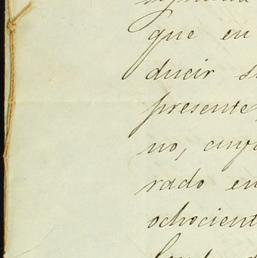 que en
ducir s
presente
no, cuy
rado en
ochocient